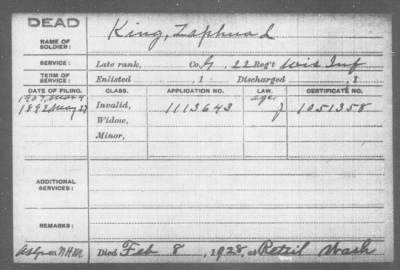 DEAD
NAME OF SOLDIER: King, Zaphna L
SERVICE: Late rank, Co. G, 22 Reg't Wis Inf
TERM OF SERVICE: Enlisted , 1 Discharged , 1
DATE OF FILING. CLASS. APPLICATION NO. LAW. CERTIFICATE NO.
1907 Mar 9 age
1892 May 27 Invalid, 1113643 J 1051358
Widow,
Minor,
ADDITIONAL SERVICES:
REMARKS:
Died Feb 8, 1928, at Wash